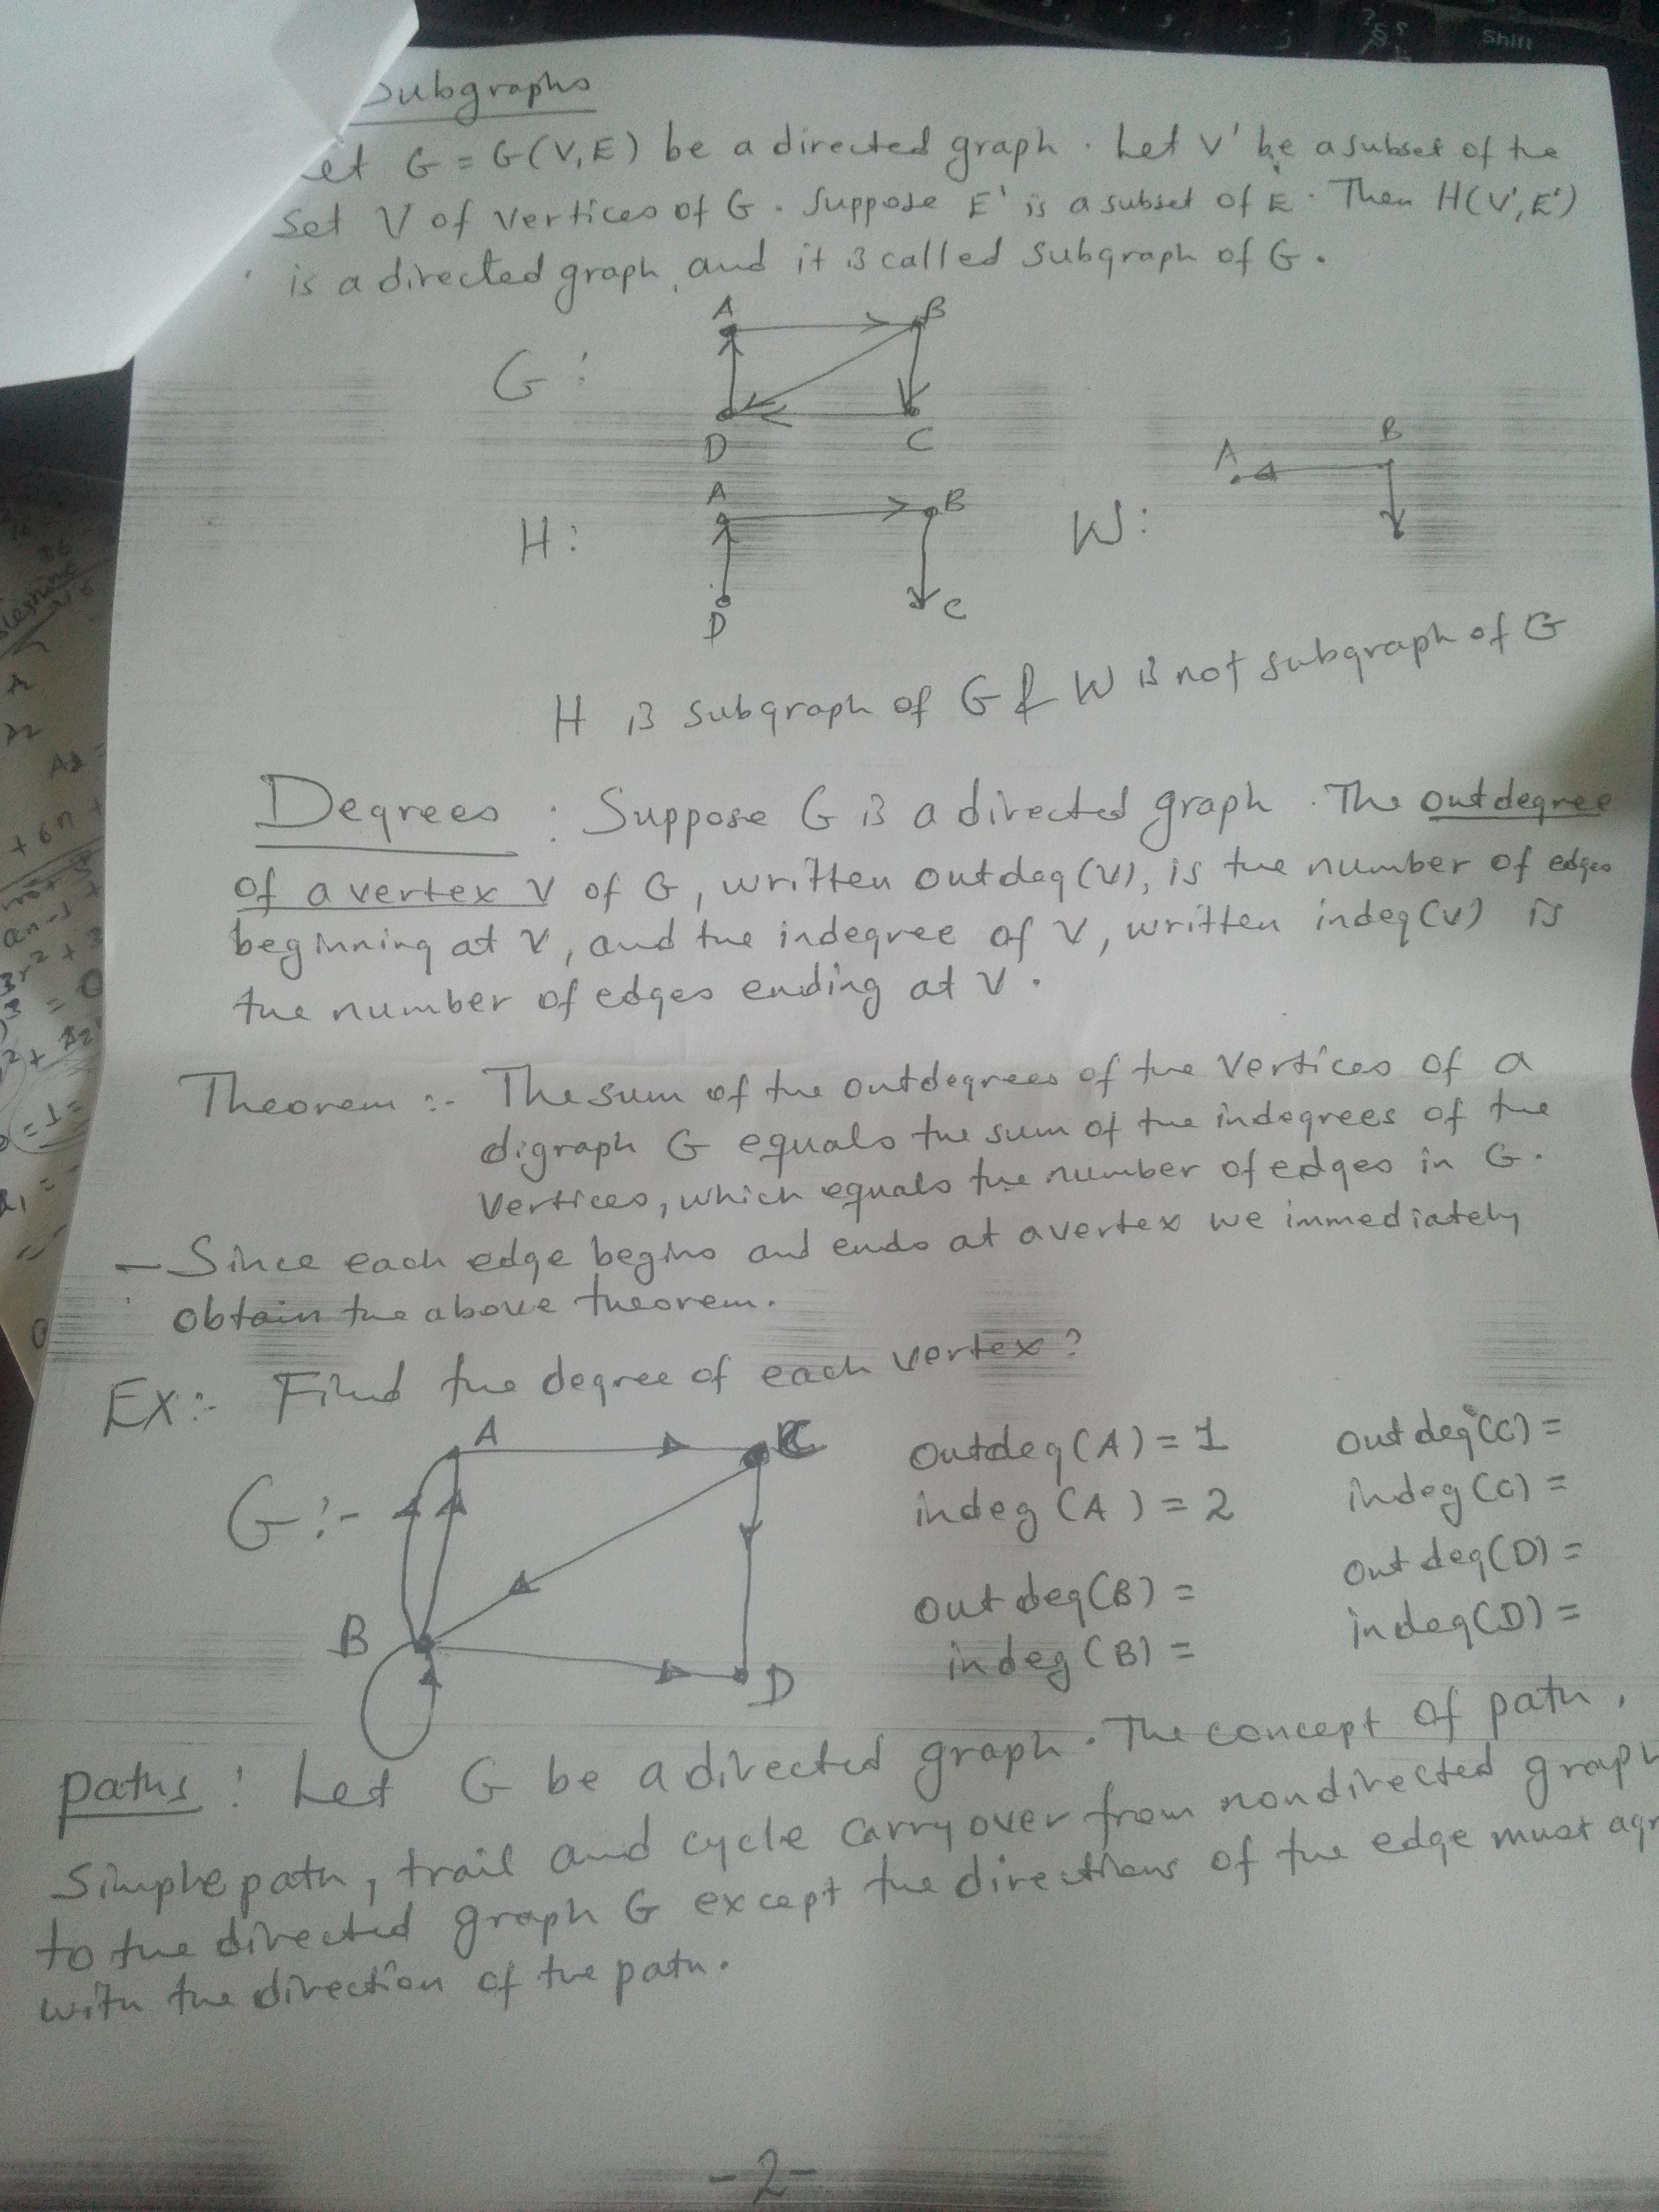 Subgraphs
Let G = G(V,E) be a directed graph. Let V' be a subset of the
set V of vertices of G. Suppose E' is a subset of E. Then H(V',E')
is a directed graph, and it is called subgraph of G.
A B
G:
D C
A B
A B
H: W:
D C
H is subgraph of G & W is not subgraph of G
Degrees : Suppose G is a directed graph. The outdegree
of a vertex V of G, written outdeg(V), is the number of edges
beginning at V, and the indegree of V, written indeg(V) is
the number of edges ending at V.
Theorem :- The sum of the outdegrees of the vertices of a
digraph G equals the sum of the indegrees of the
vertices, which equals the number of edges in G.
- Since each edge begins and ends at a vertex we immediately
obtain the above theorem.
Ex:- Find the degree of each vertex?
A C
G:-
B
D
outdeg(A) = 1 outdeg(C) =
indeg(A) = 2 indeg(C) =
outdeg(B) = outdeg(D) =
indeg(B) = indeg(D) =
paths : Let G be a directed graph. The concept of path,
Simple path, trail and cycle carry over from nondirected graph
to the directed graph G except the directions of the edge must agr
with the direction of the path.
-2-
Shift